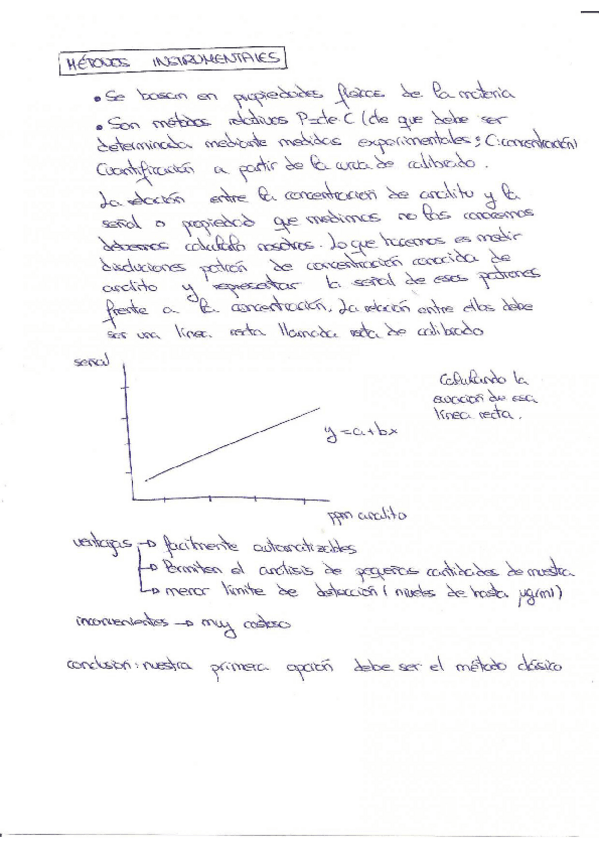 MÉTODOS INSTRUMENTALES
• Se basan en propiedades físicas de la materia
• Son métodos relativos P=cte·C (cte que debe ser
determinada mediante medidas experimentales; C:concentración)
Cuantificación a partir de la curva de calibrado.
La relación entre la concentracion de analito y la
señal o propiedad que medimos no las conocemos
debemos calcularlo nosotros. Lo que hacemos es medir
disoluciones patrón de concentración conocida de
analito y representar la señal de esos patrones
frente a la concentración. La relación entre ellos debe
ser una línea recta llamada recta de calibrado
señal
Calculando la
ecuación de esa
línea recta.
y=a+bx
ppm analito
ventajas → facilmente automatizables
→ Permiten el análisis de pequeñas cantidades de muestra
→ menor límite de detección (niveles de hasta µg/ml)
inconvenientes → muy costoso
conclusión: nuestra primera opción debe ser el método clásico